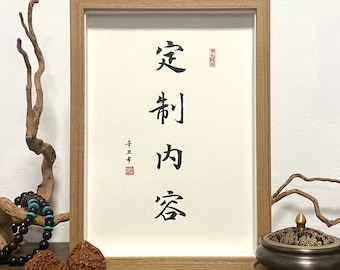 定制内容
辛丑年